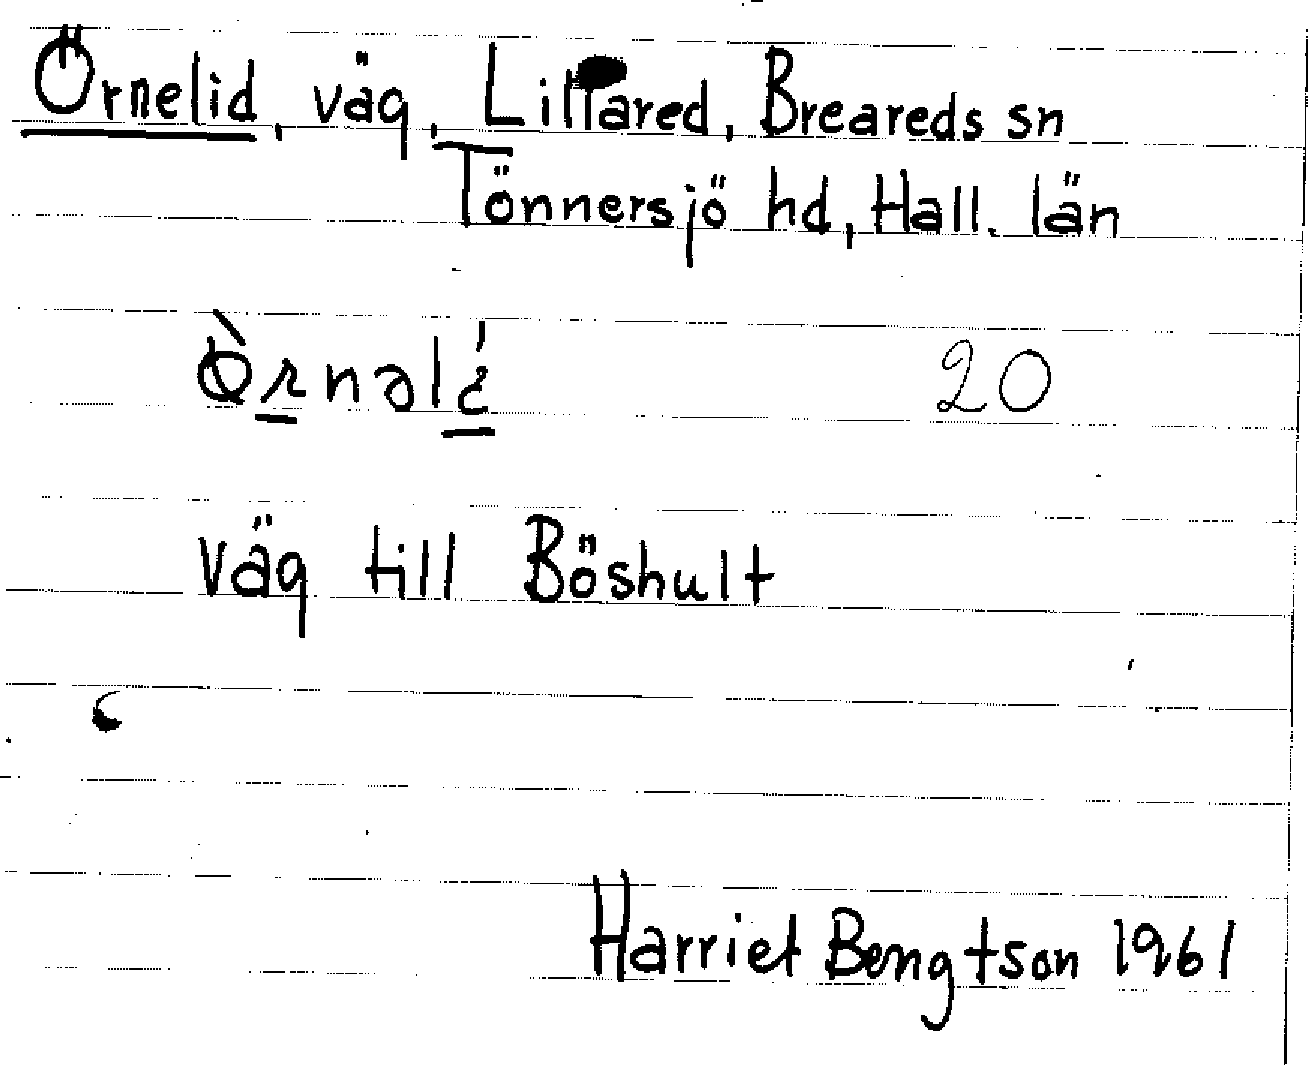 Örnelid, väg, Lillared, Breareds sn
Tönnersjö hd, Hall. län
20
väg till Böshult
Harriet Bengtson 1961